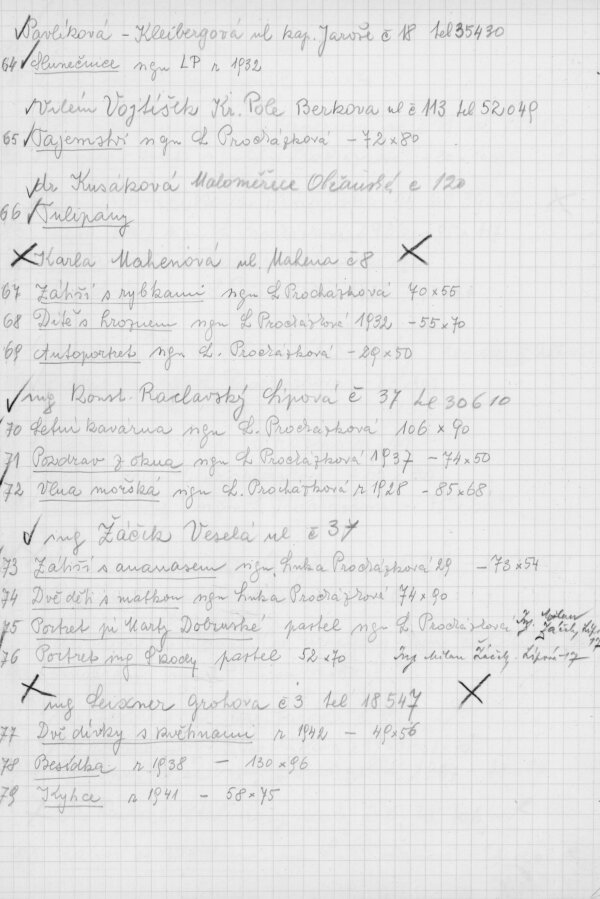 Pavlíková - Kleibergová ul kap. Jaroše č 18 tel 35430
64 Slunečnice sgn LP r 1932
Vilém Vojtíšek Kr. Pole Berkova ul č 113 tel 52049
65 Tajemství sgn L Procházková - 72x80
dr Kusáková Maloměřice Občanská č 120
66 Tulipány
Karla Mahenová ul. Mahena č 8
67 Zátiší s rybkami sgn L Procházková 70x55
68 Dítě s hroznem sgn L Procházková 1932 - 55x70
69 Autoportret sgn L. Procházková - 29x50
ing Konst. Raclavský Lipová č 37 tel 30610
70 Letní kavárna sgn L. Procházková 106 x 90
71 Pozdrav z okna sgn L. Procházková 1937 - 74x50
72 Vlna mořská sgn L. Procházková r 1928 - 85x68
ing Žáčik Veselá ul č 37
73 Zátiší s ananasem sgn. Linka Procházková 29 - 73x54
74 Dvě děti s matkou sgn Linka Procházková 74x90
75 Portret pí Marty Dobruské pastel sgn L. Procházková Ing. Milan Žáčik, Lípová 17
76 Portret ing Škody pastel 52x70 Ing Milan Žáčik. Lípová 17
ing Leixner Grohova č 3 tel 18547
77 Dvě dívky s květinami r 1942 - 49x56
78 Besídka r. 1938 - 130x96
79 Kytice r 1941 - 58x75